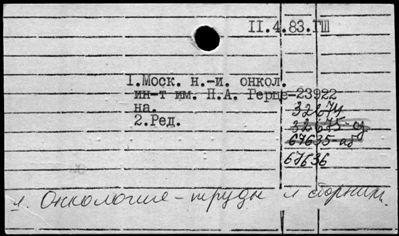 II.4.83.ГШ
1.Моск. н.-и. онкол.
ин-т им. П.А. Герце-23922
на.
32674
2.Ред.
32675-
67635-аб
67636
л. Онкология - труды и сборники.